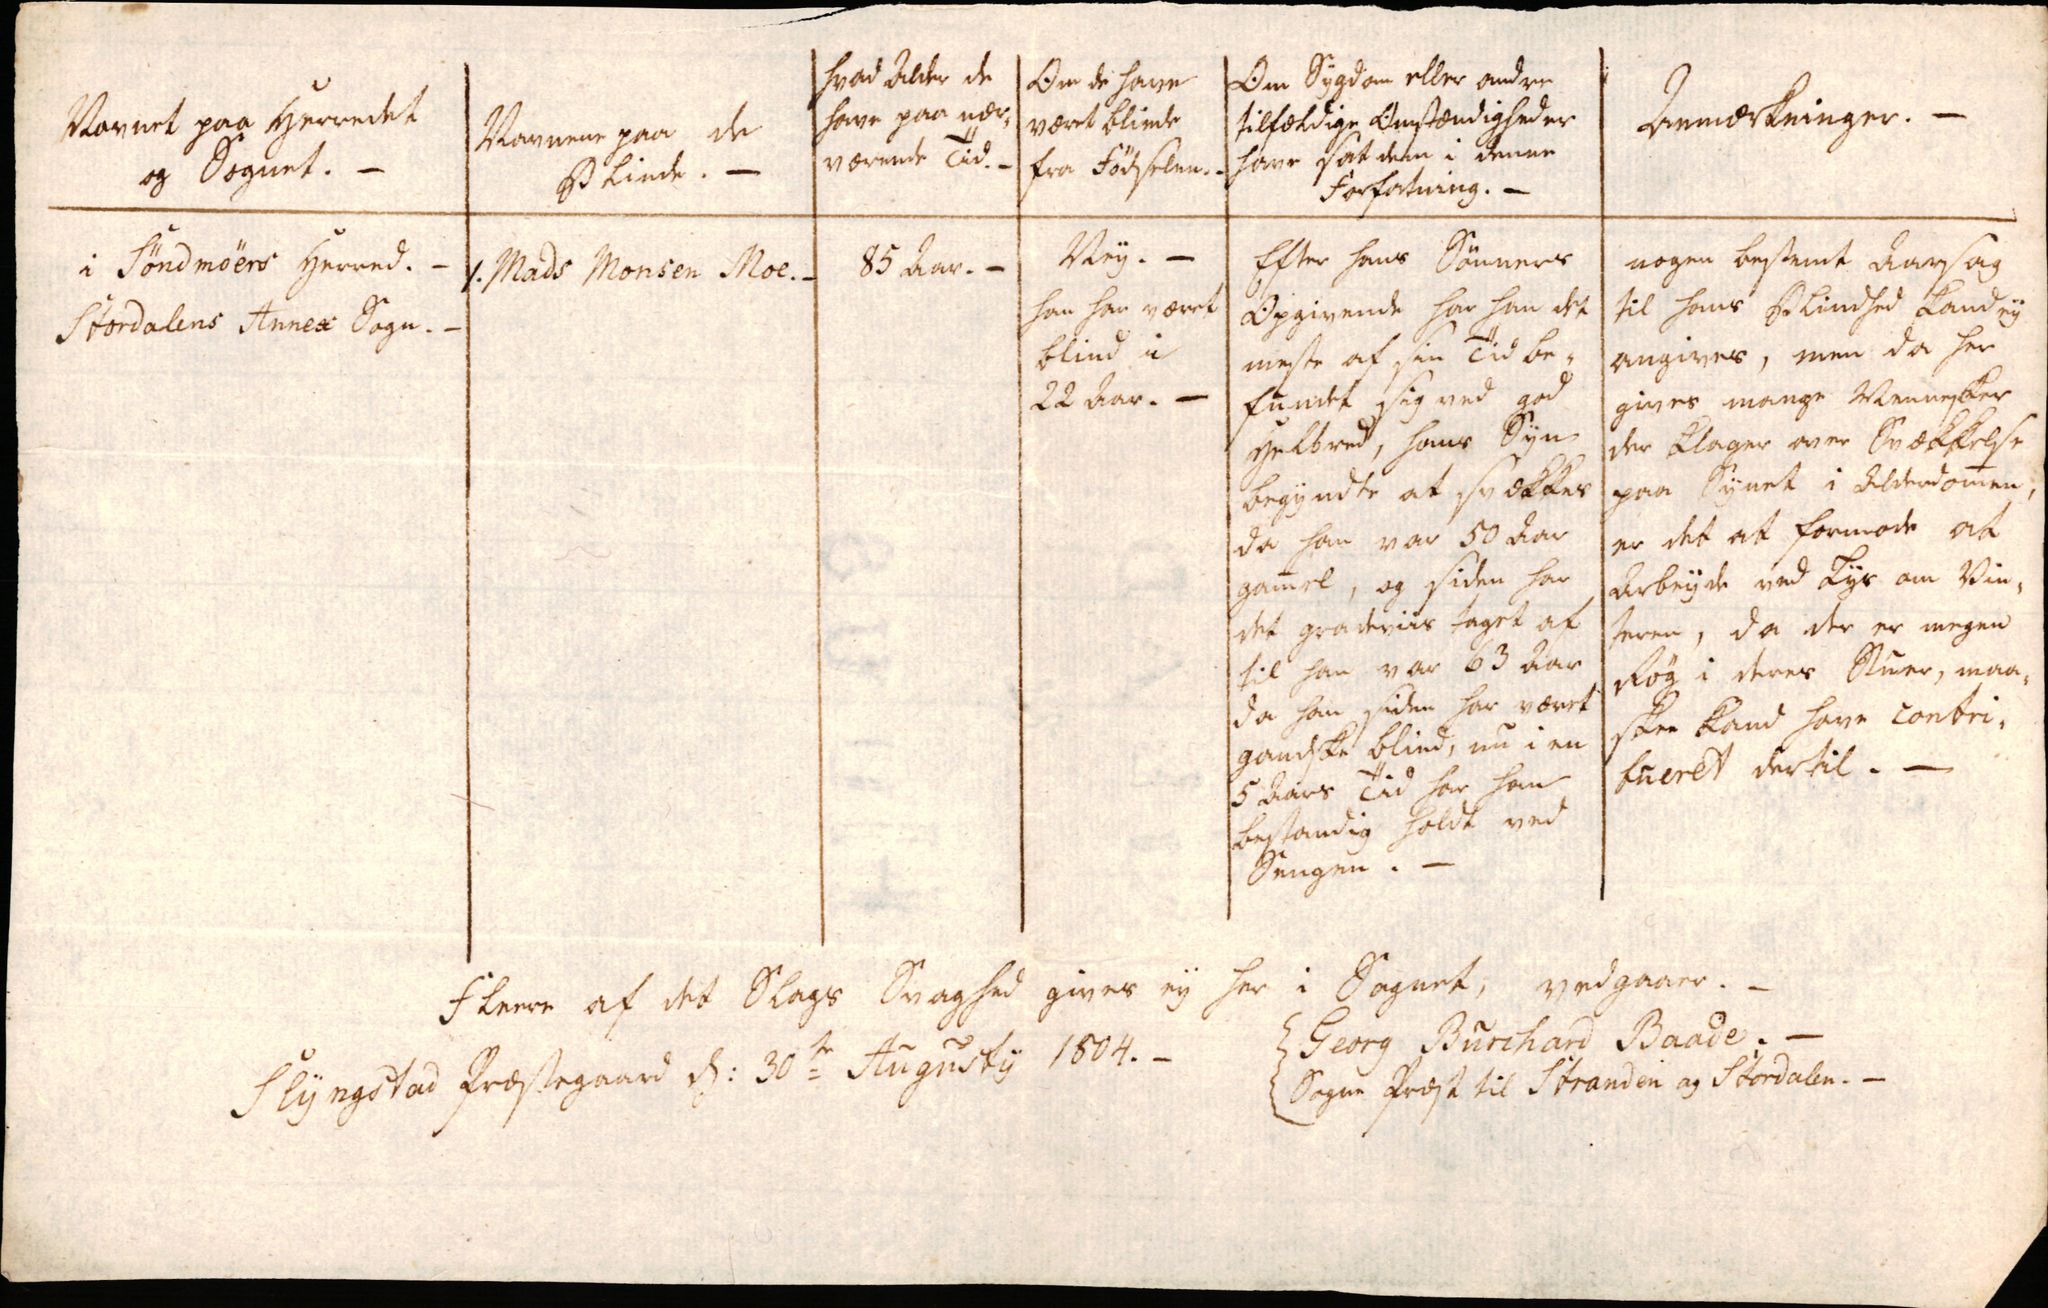 Navnet paa Herredet
og Sognet. —
Navnene paa de
Blinde. —
hvad Alder de
have paa nær-
værende Tid. —
Om de have
været blinde
fra Fødselen. -
Om Sygdom eller andre
tilfældige Omstændigheder
have sat dem i denne
Forfatning. —
Anmærkninger. —
i Söndmöers Herred. —
Stordalens Annex Sogn. —
1. Mads Monsen Moe. —
85 Aar. —
Nej. —
han har været
blind i
22 Aar. —
Efter hans Sönners
Opgivende har han det
meste af sin Tid be-
fundet sig ved god
Helbred, hans Syn
begyndte at svækkes
da han var 50 Aar
gam̅el, og siden har
det gradeviis taget af
til han var 63 Aar
da han siden har været
gandske blind, nu i en
5 Aars Tid har han
bestandig holdt ved
Sengen. —
nogen bestemt Aarsag
til hans Blindhed kand ej
angives, men da her
gives mange Mennesker
der klager over Svækkelse
paa Synet i Alderdom̅en,
er det at formode at
Arbejde ved Lys om Vin-
teren, da der er megen
Røg i deres Stuer, maa-
skee kand have contri-
bueret dertil. —
Fleere af det Slags Svaghed gives ej her i Sognet, vedgaaer. —
Slyngstad Præstegaard d: 30te Augusty 1804. —
Georg Burchard Baade. —
Sogne Præst til Stranden og Stordalen. —